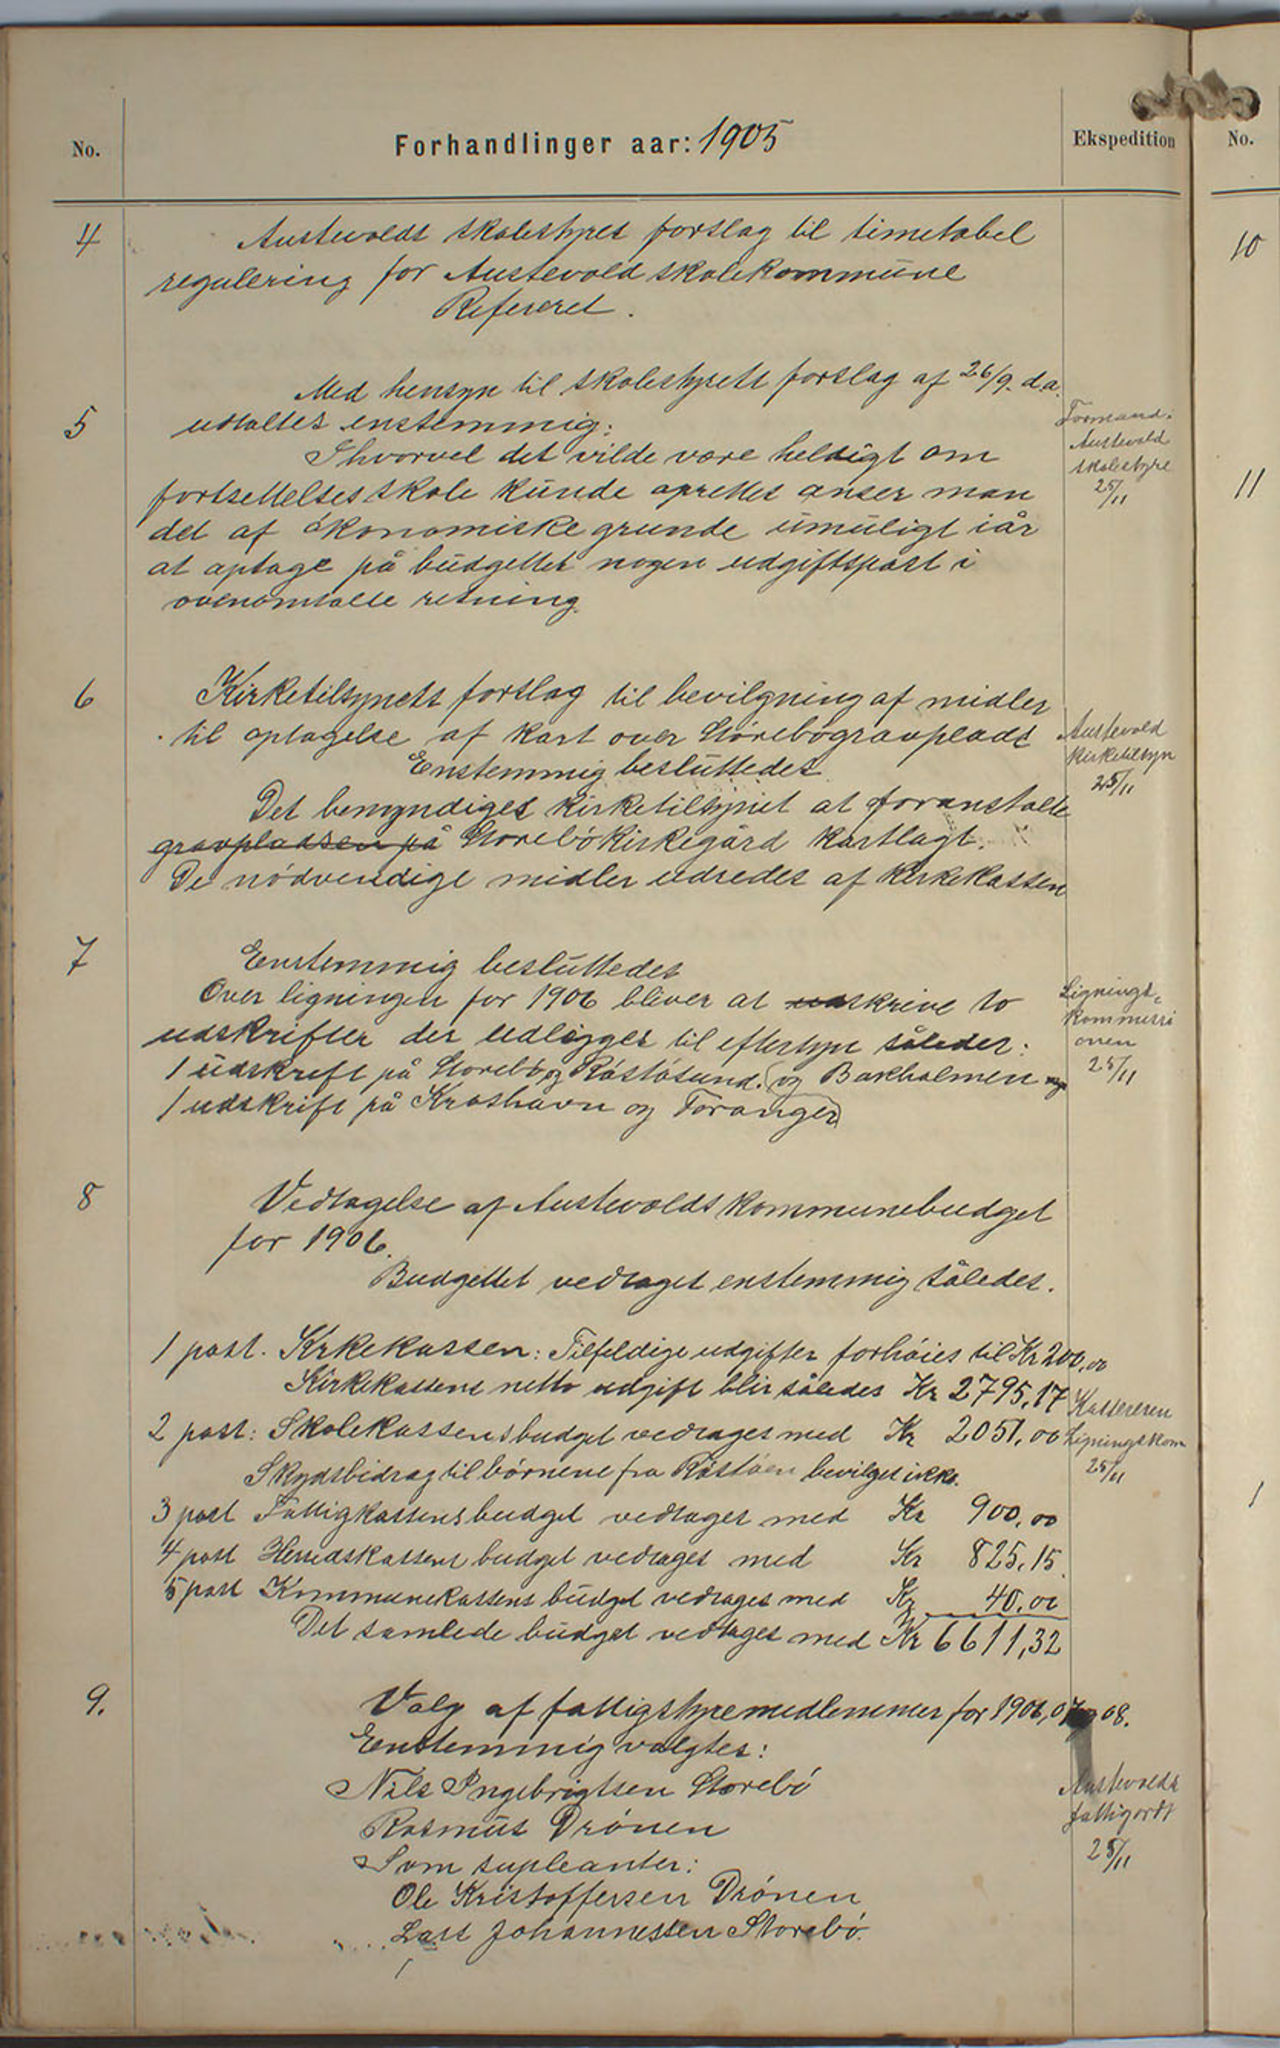 No.
Forhandlinger aar: 1905
Ekspedition
No.
4
Austevolds skolestyres forslag til timetabel
regulering for Austevold skolekommune
Refereret.
10
5
Med hensyn til skolestyrets forslag af 26/9. d.a.
udtaltes enstemmig:
Ihvorvel det vilde være heldigt om
fortsettelsesskole kunde oprettes anser man
det af økonomiske grunde umuligt iår
at optage på budgettet nogen udgiftspost i
ovenomtalte retning.
Formand.
Austevold
skolestyre
25/11
11
6
Kirketilsynets forslag til bevilgning af midler
til optagelse af kart over Storebø gravplads
Enstemmig besluttedes
Det bemyndiges kirketilsynet at foranstalte
gravpladsen på Storebø kirkegård kartlagt.
De nødvendige midler udredes af kirkekassen
Austevold
kirketilsyn
25/11
7
Enstemmig besluttedes
Over ligningen for 1906 bliver at udskrive to
udskrifter der udlægges til eftersyn således:
1 udskrift på Storebø og Rostøsund. (og Bakholmen
1 udskrift på Krosshavn og Toranger)
Lignings-
kommissi
onen
25/11
8
Vedtagelse af Austevolds kommunebudget
for 1906.
Budgettet vedtaget enstemmig således.
1 post. Kirkekassen: Tilfeldige udgifter forhøies til Kr 200,00
Kirkekassens netto udgift blir således Kr 2795,17
2 post: Skolekassens budget vedtages med Kr 2051,00
Skydsbidrag til børnene fra Rostøen bevilges ikke.
3 post Fattigkassens budget vedtages med Kr 900,00
4 post Herredskassens budget vedtages med Kr 825,15
5 post Kommunekassens budget vedtages med Kr 40,00
Det samlede budget vedtages med Kr 6611,32
Kassereren
Ligningskom
25/11
1
9.
Valg af fattigstyremedlemmer for 1906, 07 og 08.
Enstemmig valgtes:
Nils Ingebrigtsen Storebø
Rasmus Drønen
Som supleanter:
Ole Kristoffersen Drønen
Lars Johannessen Storebø.
Austevolds
fattigordf
25/11